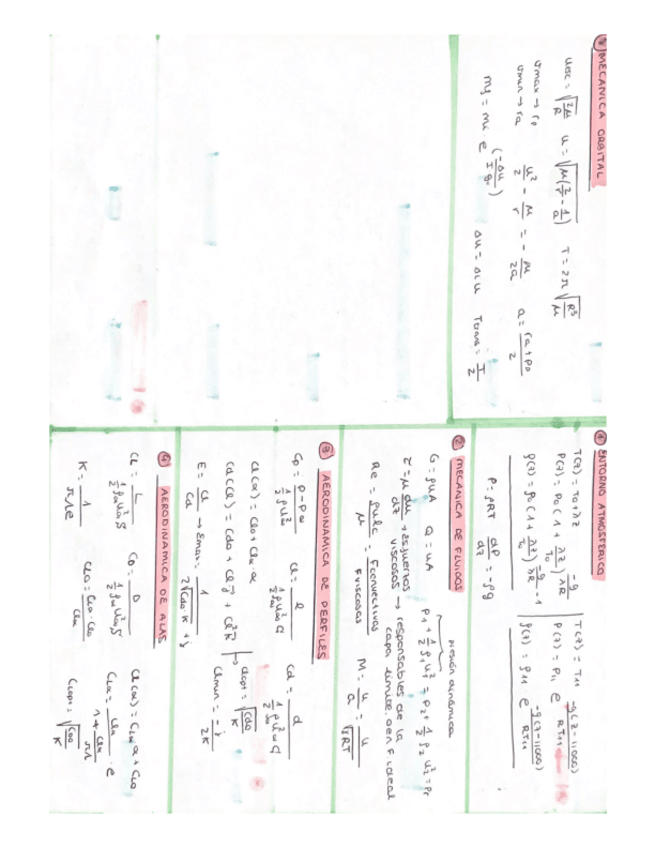 ① ENTORNO ATMOSFÉRICO
T(z) = T0 + λz
P(z) = P0 (1 + λz/T0)^(-g/λR)
ρ(z) = ρ0 (1 + λz/T0)^(-g/λR - 1)
T(z) = T11
P(z) = P11 e^(-g(z-11000)/RT11)
ρ(z) = ρ11 e^(-g(z-11000)/RT11)
P = ρRT dP/dz = -ρg
② MECANICA DE FLUIDOS
presión dinámica
G = ρuA Q = uA P1 + 1/2 ρ1 u1² = P2 + 1/2 ρ2 u2² = Pr
τ = μ du/dz → esfuerzos viscosos → responsables de la capa límite. en F. ideal
Re = ρuLc/μ = Fconvectivas/Fviscosas M = u/a = u/√γRT
③ AERODINAMICA DE PERFILES
Cp = P - P∞ / 1/2 ρ U∞² Cl = l / 1/2 ρ∞ U∞² c Cd = d / 1/2 ρ U∞² c
Cl(α) = Cl0 + Clα α
Cd(Cl) = Cd0 + Cl j + Cl² k → Clopt = √Cd0/K Clmin = -j/2k
E = Cl/Cd → Emax = 1 / 2√Cd0·K + j
④ AERODINAMICA DE ALAS
CL = L / 1/2 ρ∞ U∞² S CD = D / 1/2 ρ∞ U∞² S CL(α) = CLα α + CL0
K = 1/πΛe CL0 = CLα · Cl0 / Clα CLα = Clα / 1 + Clα/πΛ · e
CLopt = √CD0/K
⑦ MECANICA ORBITAL
Uesc = √2μ/R U = √μ(2/r - 1/a) T = 2π √R³/μ
Umax → rp
Umin → ra
U²/2 - μ/r = - μ/2a a = ra + rp / 2
mf = mi e^(-Δu / I g0) Δu = Δi u Ttrans = T/2